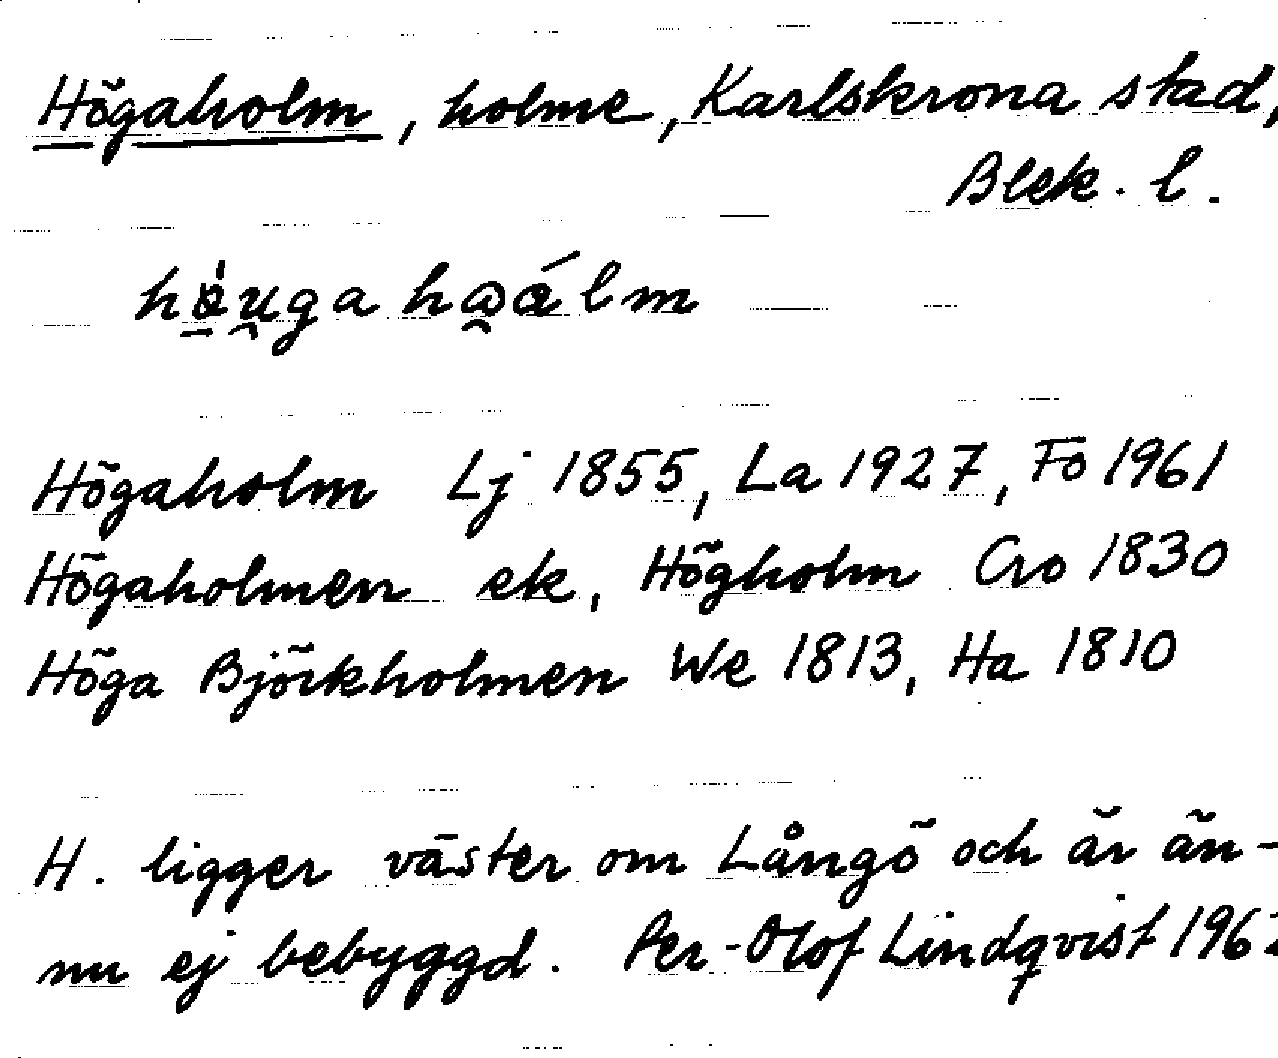 Högaholm, holme, Karlskrona stad,
Blek. l.
Högaholm Lj 1855, La 1927, Fö 1961
Högaholmen ek, Högholm Cro 1830
Höga Björkholmen We 1813, Ha 1810
H. ligger väster om Långö och är än-
nu ej bebyggd. Per-Olof Lindqvist 1962